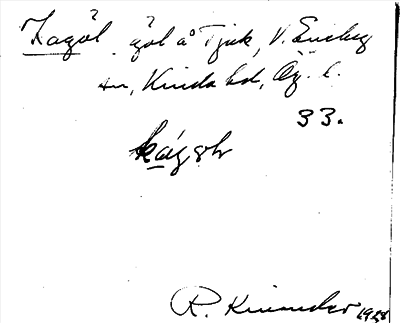 Kagöl göl å Tjuk, V. Eneby
sn, Kinda hd, Ög. l.
33.
kágöl
R. Kinander